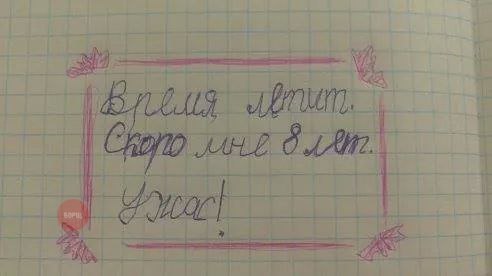 Время летит.
Скоро мне 8 лет.
Ужас!
БОРЩ